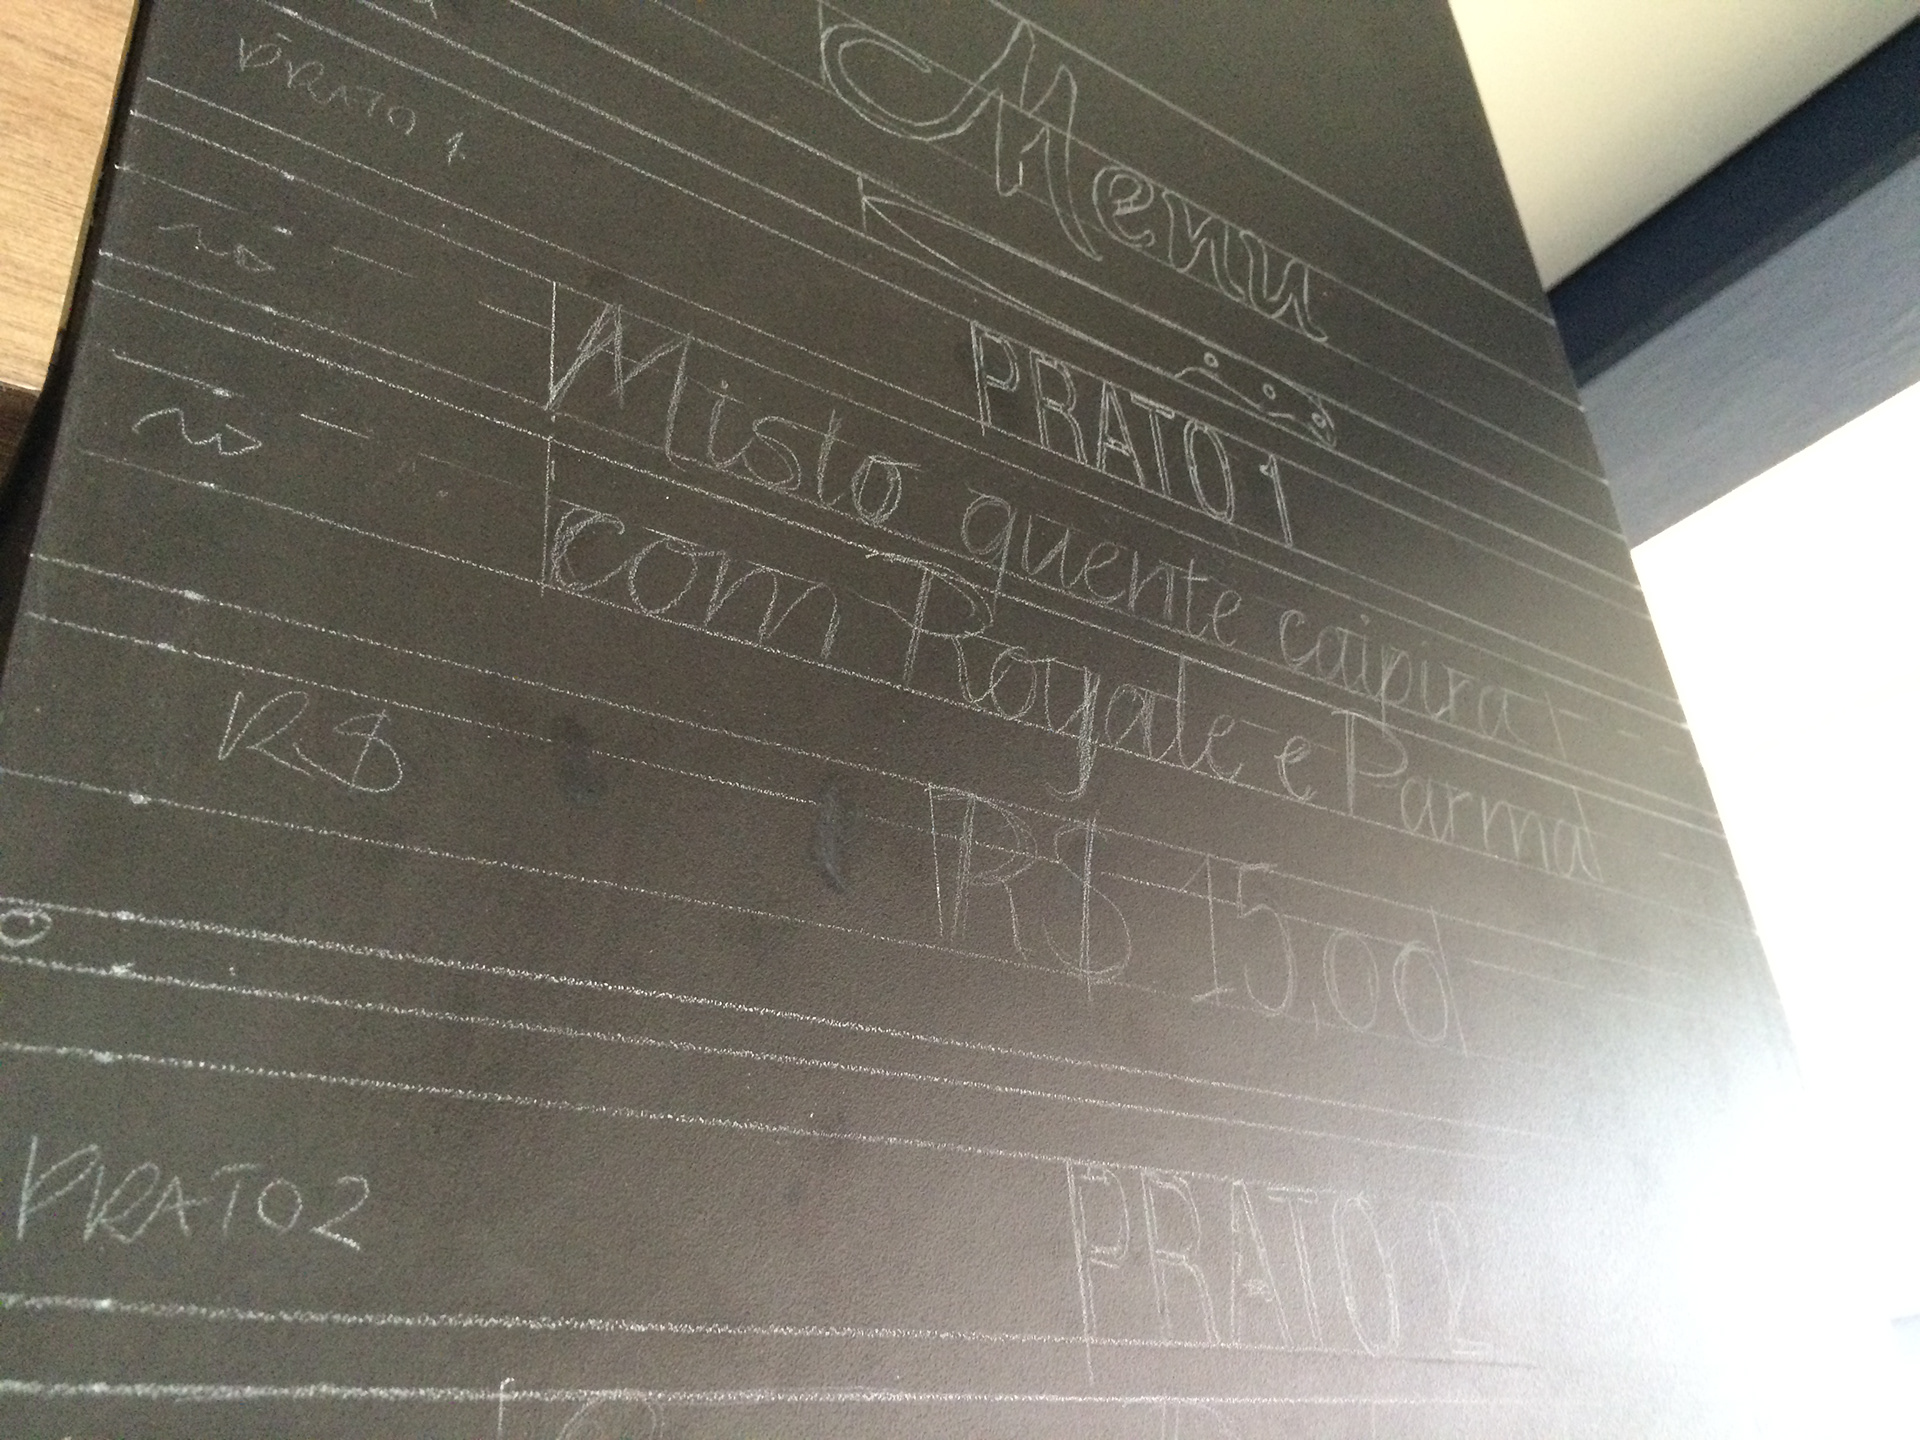 Menu
PRATO 1
PRATO 1
Misto quente caipira
com Royale e Parma
R$
R$ 15,00
PRATO 2
PRATO 2